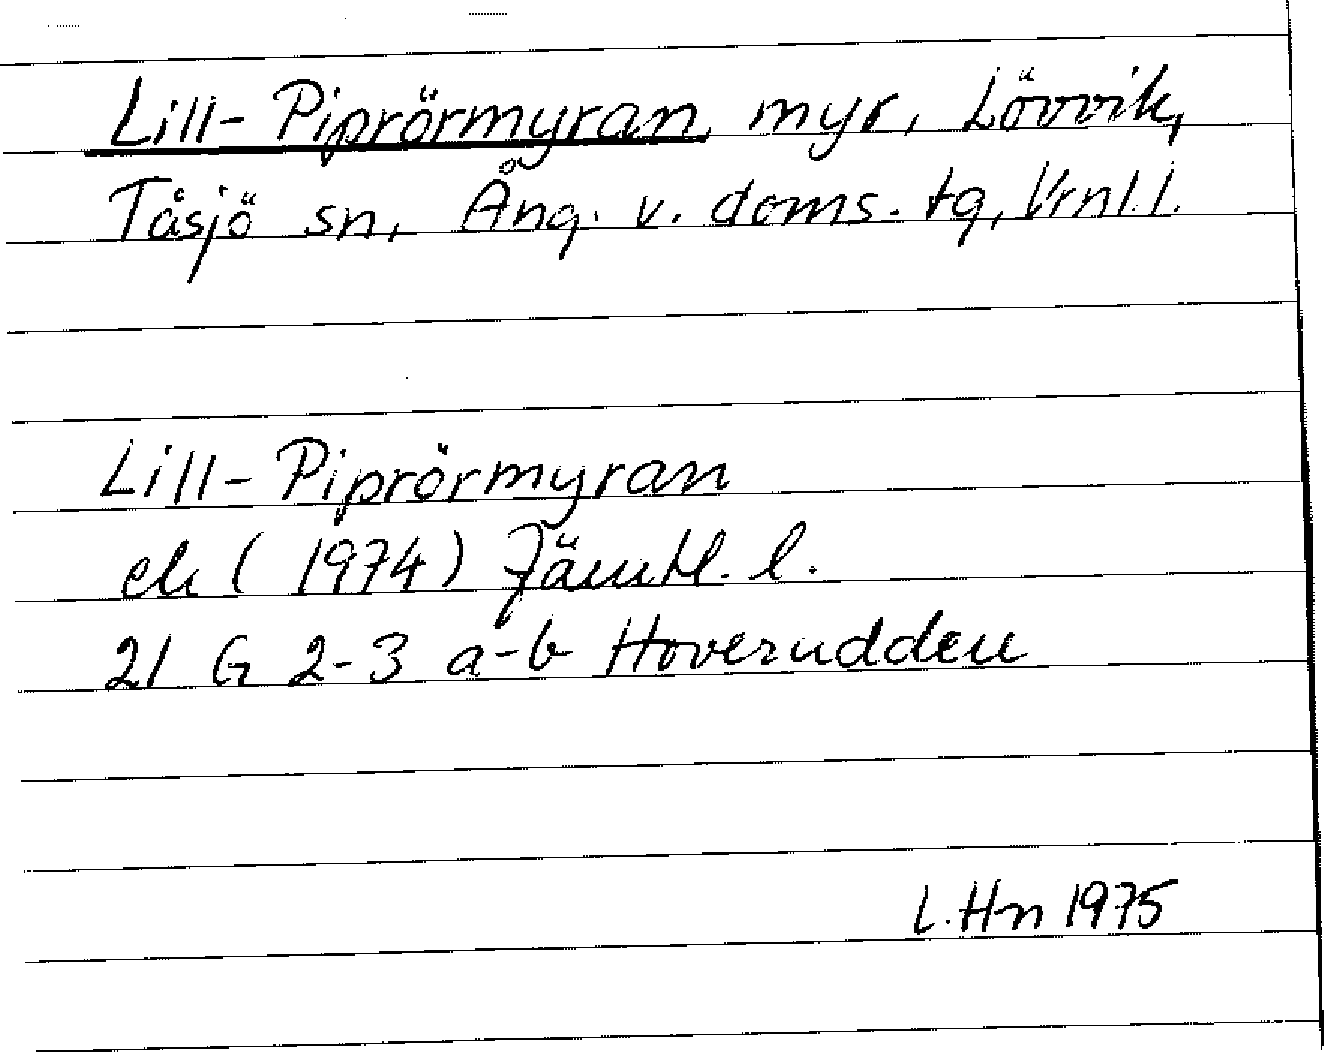 Lill-Piprörmyran, myr, Lövvik,
Tåsjö sn, Ång. v. doms. tg, Vrnl.l.
Lill-Piprörmyran
ek (1974) Jämtl. l.
21 G 2-3 a-b Hoverudden
L.Hn 1975